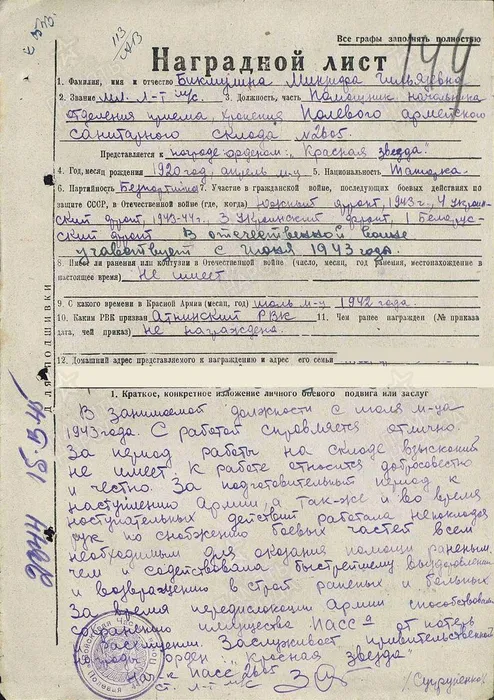 113
Все графы заполнять полностью
144
Наградной лист
1. Фамилия, имя и отчество Бикмулина Минрифа Гильязевна
2. Звание мл. л-т м/с. 3. Должность, часть Помощник начальника
отделения приема, хранения Полевого армейского
санитарного склада № 2605.
Представляется к награде орденом: „Красная звезда"
4. Год, месяц рождения 1920 год, апрель м-ц 5. Национальность Татарка.
6. Партийность Безпартийна 7. Участие в гражданской войне, последующих боевых действиях по
защите СССР, в Отечественной войне (где, когда) южный фронт, 1943 г., 4 Украин-
ский фронт, 1943-44 г., 3 Украинский фронт, 1 Белорус-
ский фронт В отечественной войне
участвует с июля 1943 года.
8. Имеет ли ранения или контузии в Отечественной войне (число, месяц, год ранения, местонахождение в
настоящее время) Не имеет
9. С какого времени в Красной Армии (месяц, год) июль м-ц 1942 года.
10. Каким РВК призван Атнинский РВК 11. Чем ранее награжден (№ приказа
дата, чей приказ) не награждена.
12. Домашний адрес представляемого к награждению и адрес его семьи
Для подшивки
1. Краткое, конкретное изложение личного боевого подвига или заслуг
В занимаемой должности с июля м-ца
1943 года. С работой справляется отлично.
За период работы на складе взысканий
не имеет к работе относится добросовестно
и честно. За подготовительный период к
наступлению Армии, а так-же и во время
наступательных действий работала непокладая
рук по снабжению боевых частей всем
необходимым для оказания помощи раненым,
чем и содействовала быстрейшему выздоровлению
и возвращению в строй раненых и больных
За время передислокации Армии способствовала
сохранению имущества ПАСС а от потерь
и расхищении. Заслуживает правительственной
награды орден „Красная звезда"
Нач. ПАСС 2605
ст. л-т м/с
/Супруненков